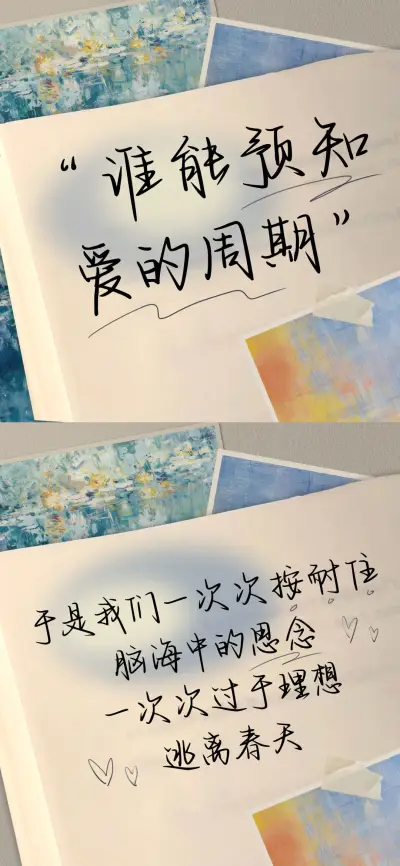 “谁能预知
爱的周期”
于是我们一次次按耐住
脑海中的思念
一次次过于理想
逃离春天